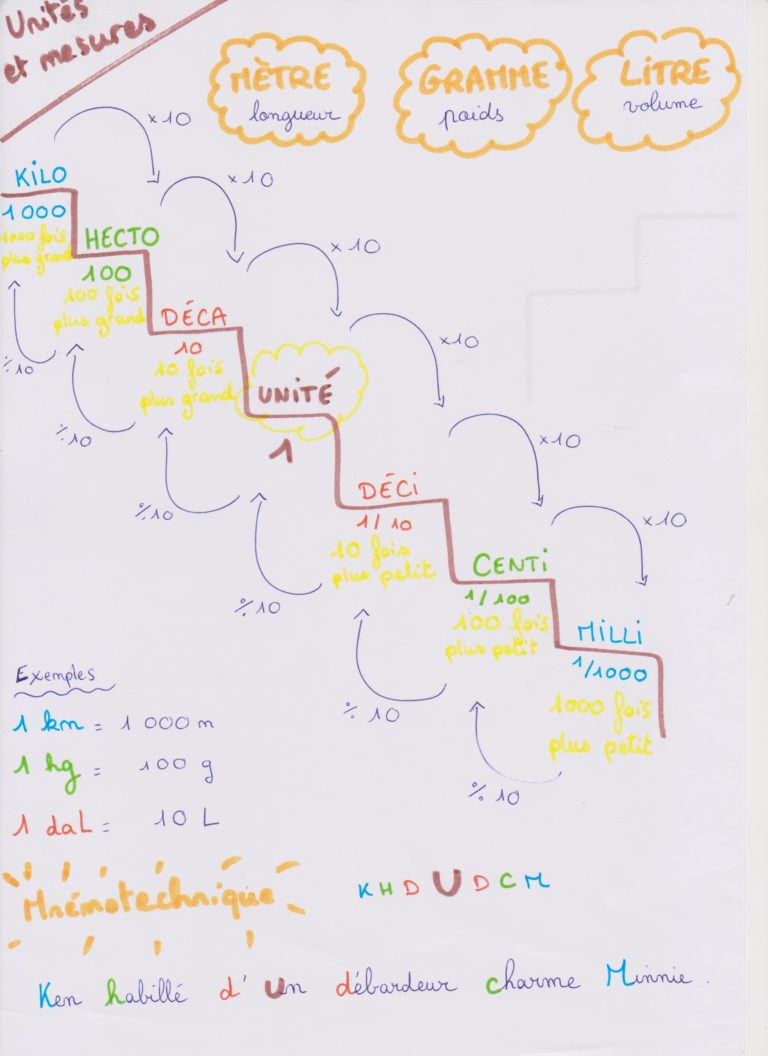 Unités
et mesures
MÈTRE
longueur
GRAMME
poids
LITRE
volume
x10
x10
x10
x10
x10
x10
KILO
1000
1000 fois
plus grand
HECTO
100
100 fois
plus grand
DÉCA
10
10 fois
plus grand
UNITÉ
1
DÉCI
1/10
10 fois
plus petit
CENTI
1/100
100 fois
plus petit
MILLI
1/1000
1000 fois
plus petit
%10
%10
%10
%10
%10
%10
Exemples
1 km = 1 000 m
1 hg = 100 g
1 daL = 10 L
Mnémotechnique
K H D U D C M
Ken habillé d'un débardeur charme Minnie.